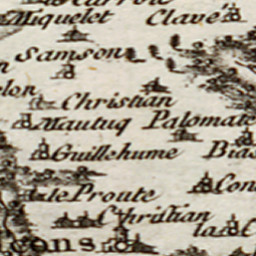 Miquelet Clavé
Samson
Christian
Mautuq Palomate
Guillehume Bias
le Proute Con
Christian
la
cons